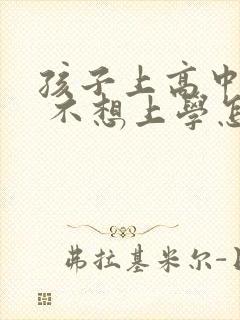 孩子上高中
不想上學怎
弗拉基米尔-